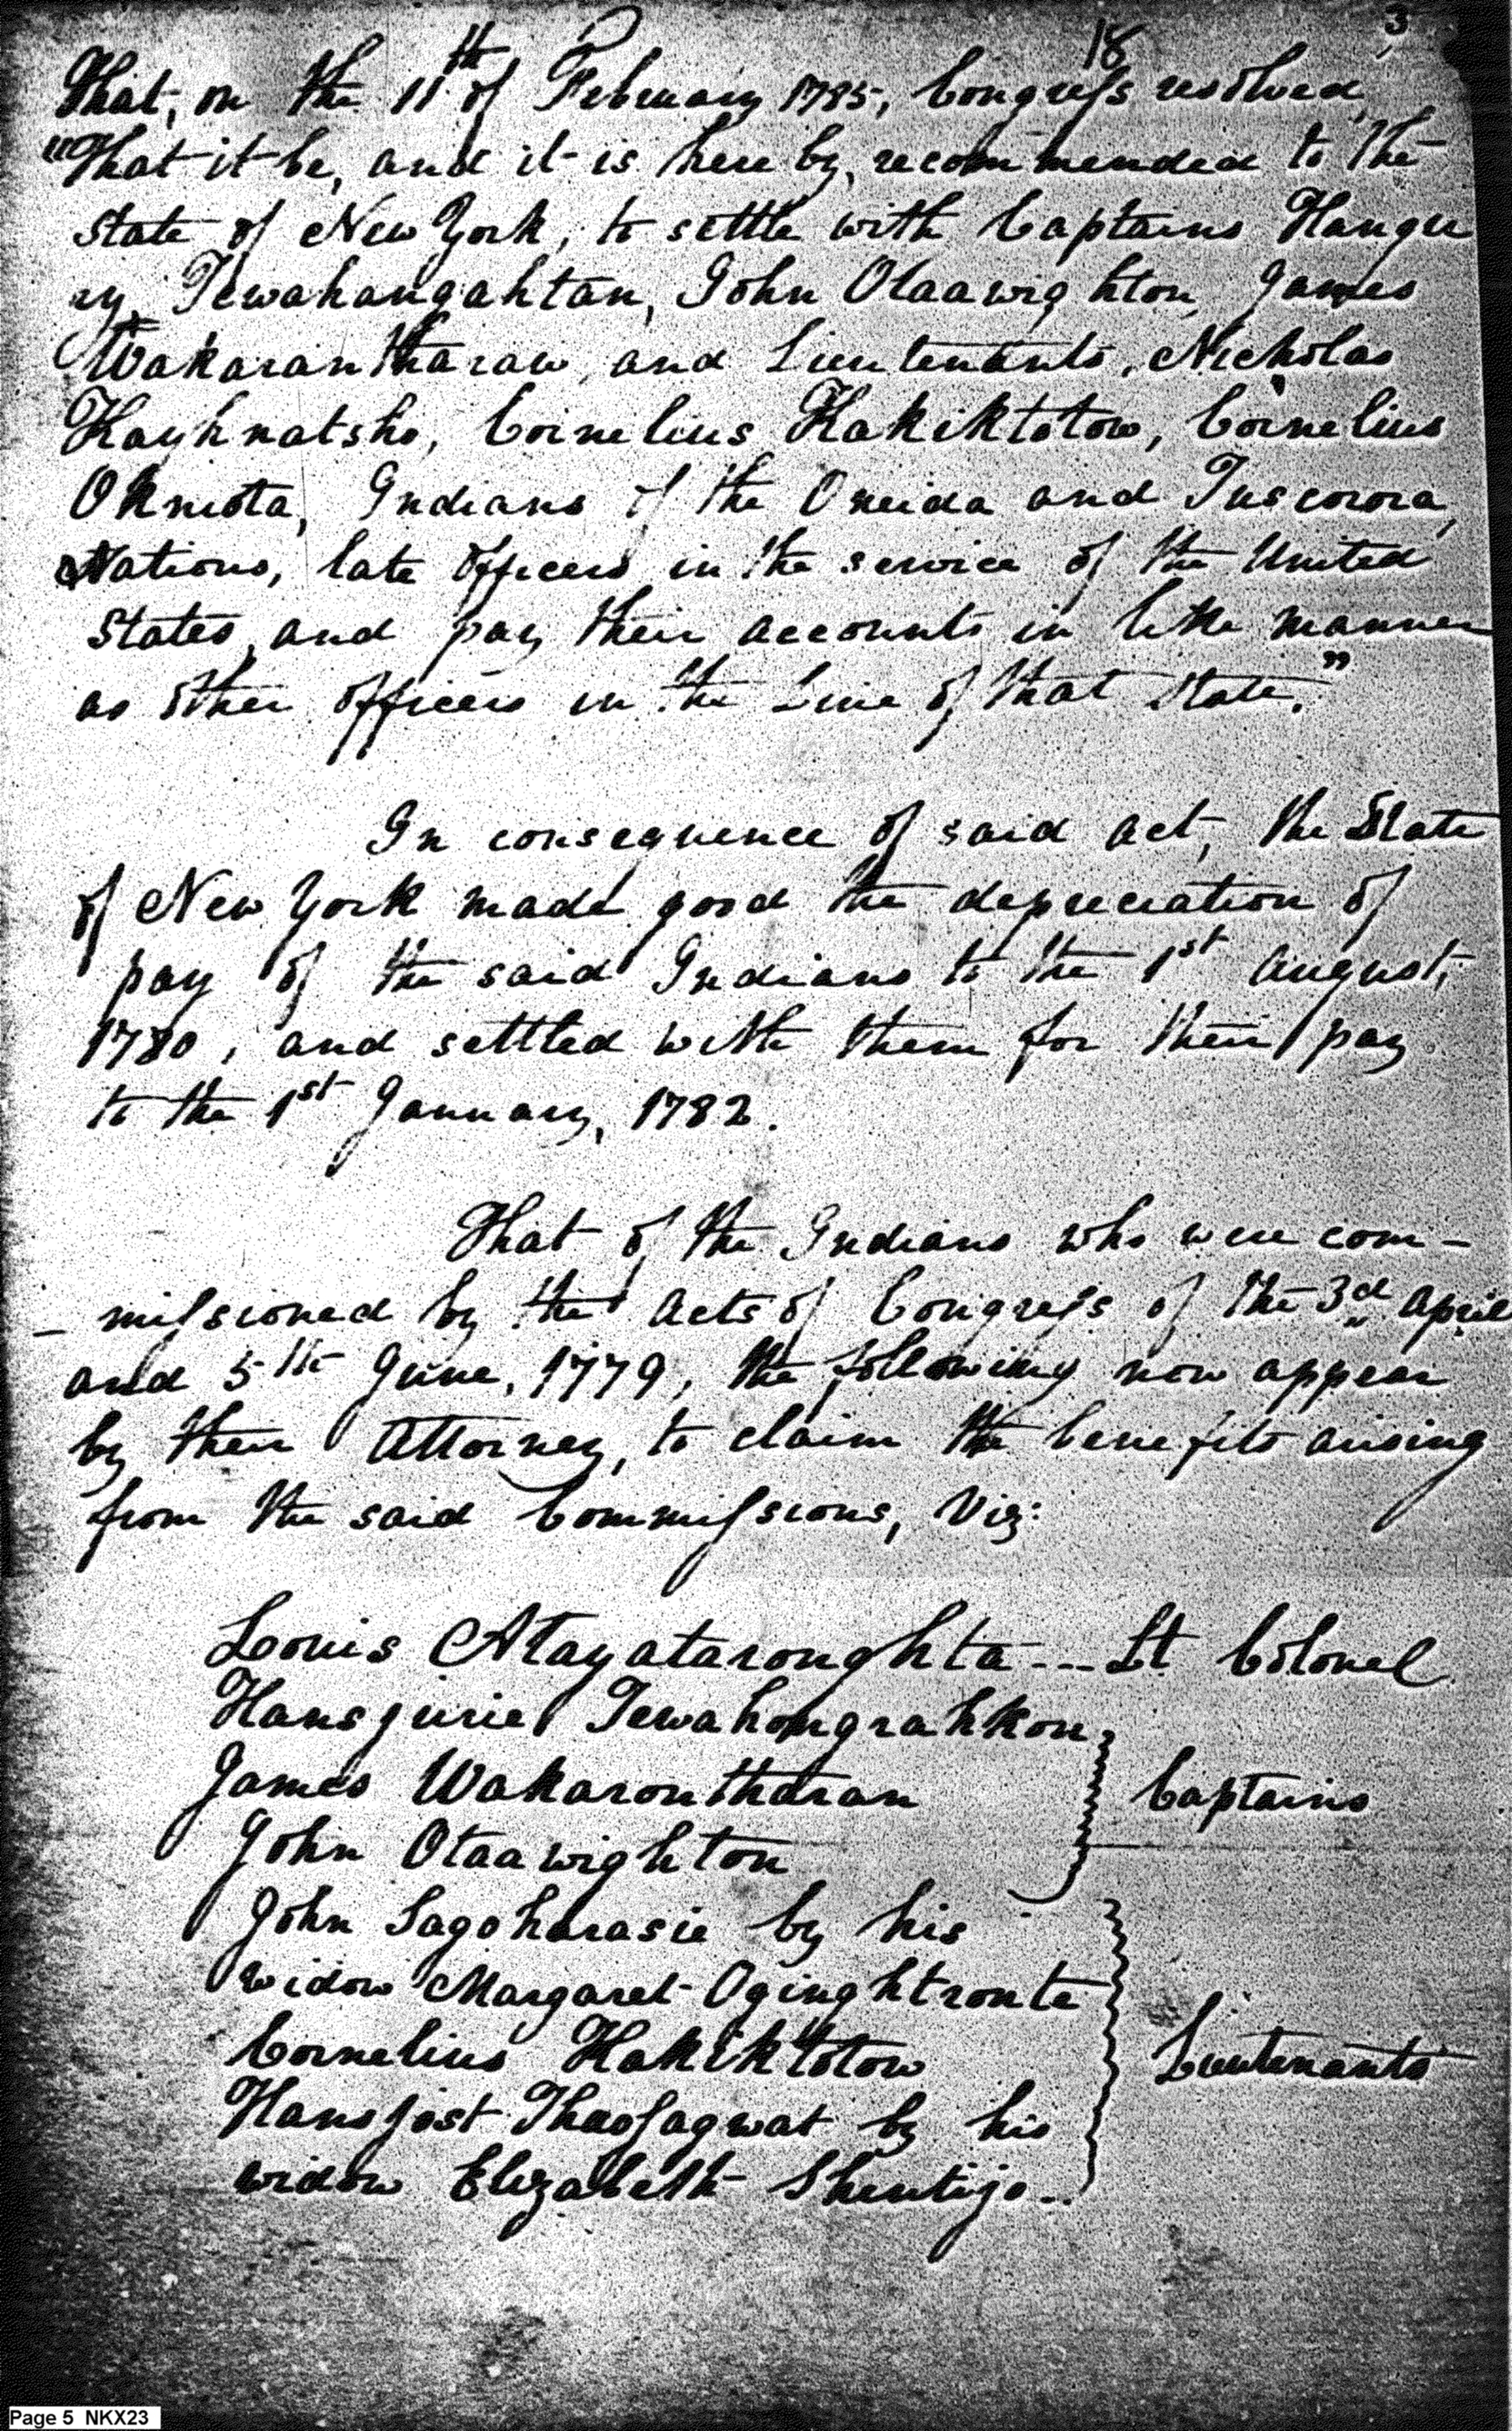 18
3
That, on the 11th of February 1785, Congress resolved,
"That it be, and it is here by, recommended to the
State of New York, to settle with Captains Hangu
ry Tewahangahtan, John Otaawighton, James
Wakarantharaw, and Lieutenants, Nicholas
Kayhnatsho, Cornelius Kakiktotow, Cornelius
Okniota, Indians of the Oneida and Tuscorora,
Nations, late officers in the service of the United
States, and pay their accounts in like manner
as other officers in the Line of that State."
In consequence of said act, the State
of New York made good the depreciation of
pay of the said Indians to the 1st August,
1780, and settled with them for their pay
to the 1st January, 1782.
That of the Indians who were com-
- missioned by the Acts of Congress of the 3d April
and 5th June, 1779, the following now appear
by their Attorney, to claim the benefits arising
from the said Commissions, Viz:
Louis Atayataronghta --- Lt. Colonel
Hansjurie Tewahongrahkon,
James Wakarontharan
Captains
John Otaawighton
John Sagoharasie by his
widow Margaret Oginghtronte
Cornelius Hakiktotow
Lieutenants
Hansjost Thaosagwat by his
widow Elizabeth Shentijo --
Page 5 NKX23